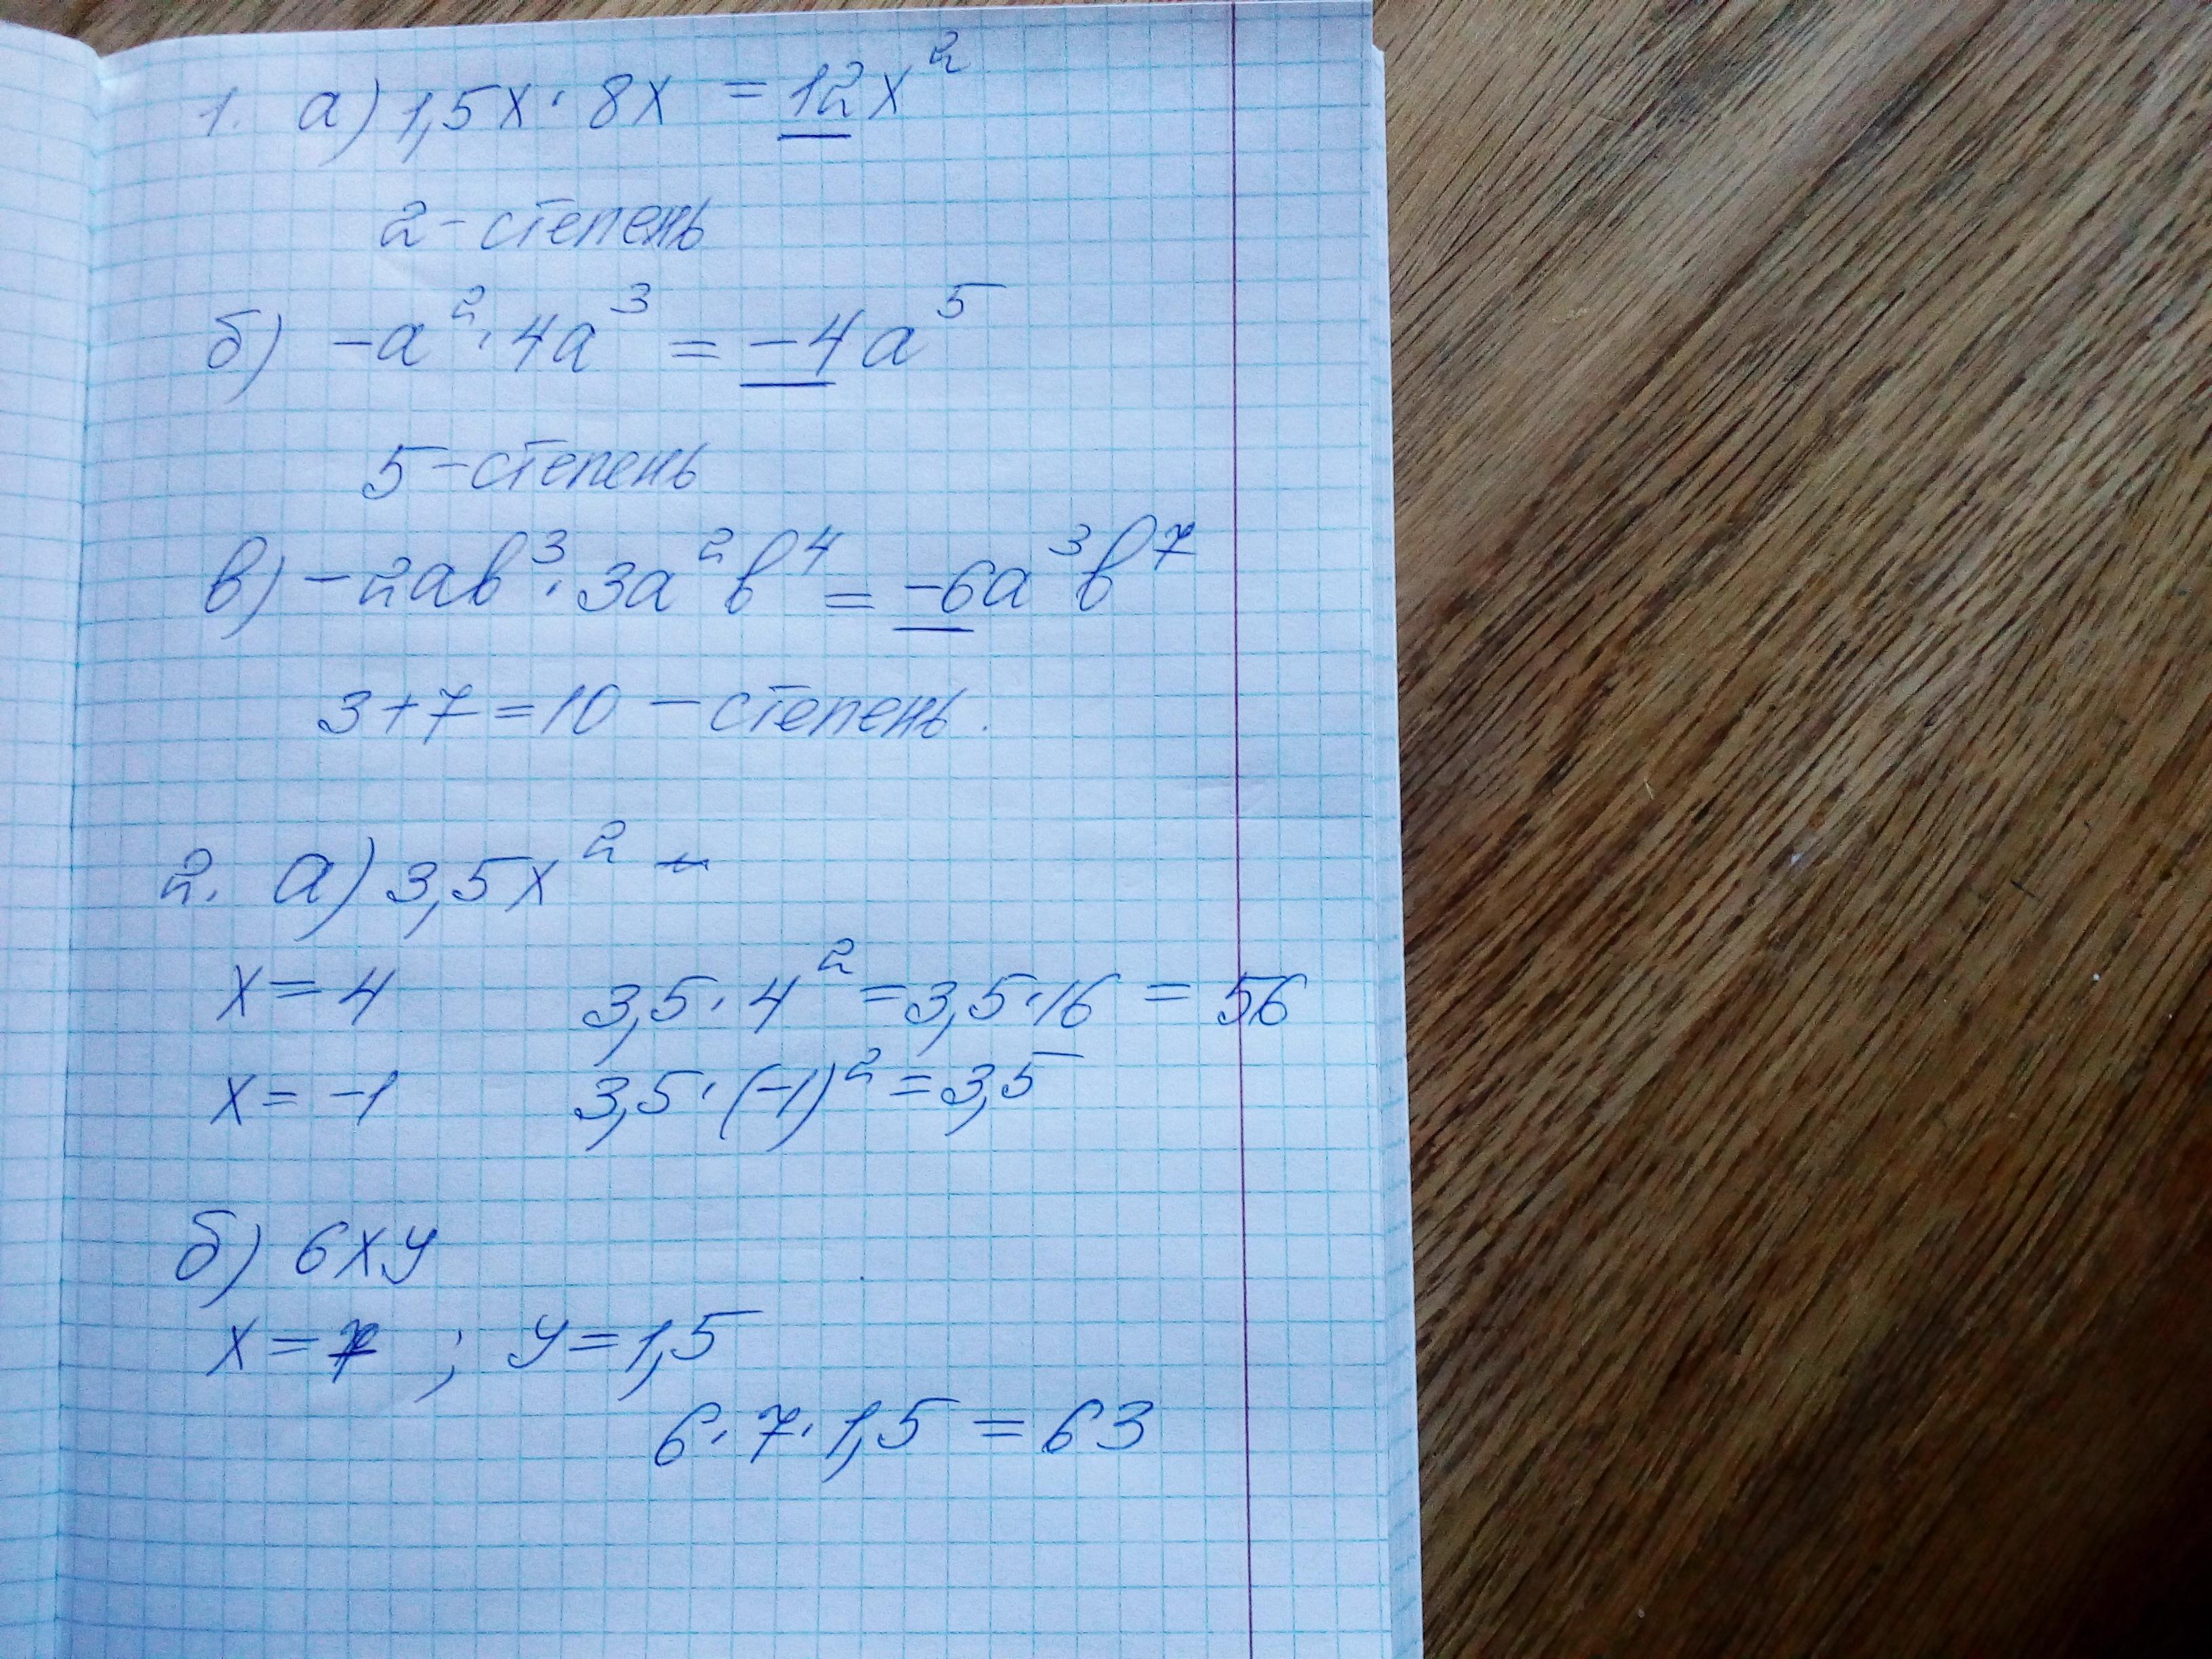 1. а) 1,5х · 8х = 12х²
2 - степень
б) -а² · 4а³ = -4а⁵
5 - степень
в) -2ав³ · 3а²в⁴ = -6а³в⁷
3+7=10 - степень.
2. а) 3,5х²
х = 4 3,5 · 4² = 3,5 · 16 = 56
х = -1 3,5 · (-1)² = 3,5
б) 6ху
х = 7 ; у = 1,5
6 · 7 · 1,5 = 63